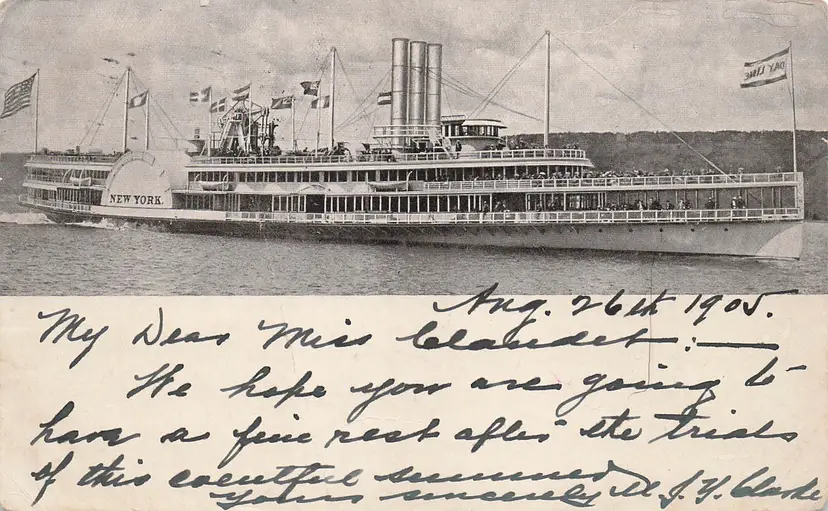 DAY LINE
NEW YORK.
Aug. 26th 1905.
My Dear Miss Claudet :—
We hope you are going to
have a fine rest after the trials
of this eventful summer
Yours sincerely Clarke